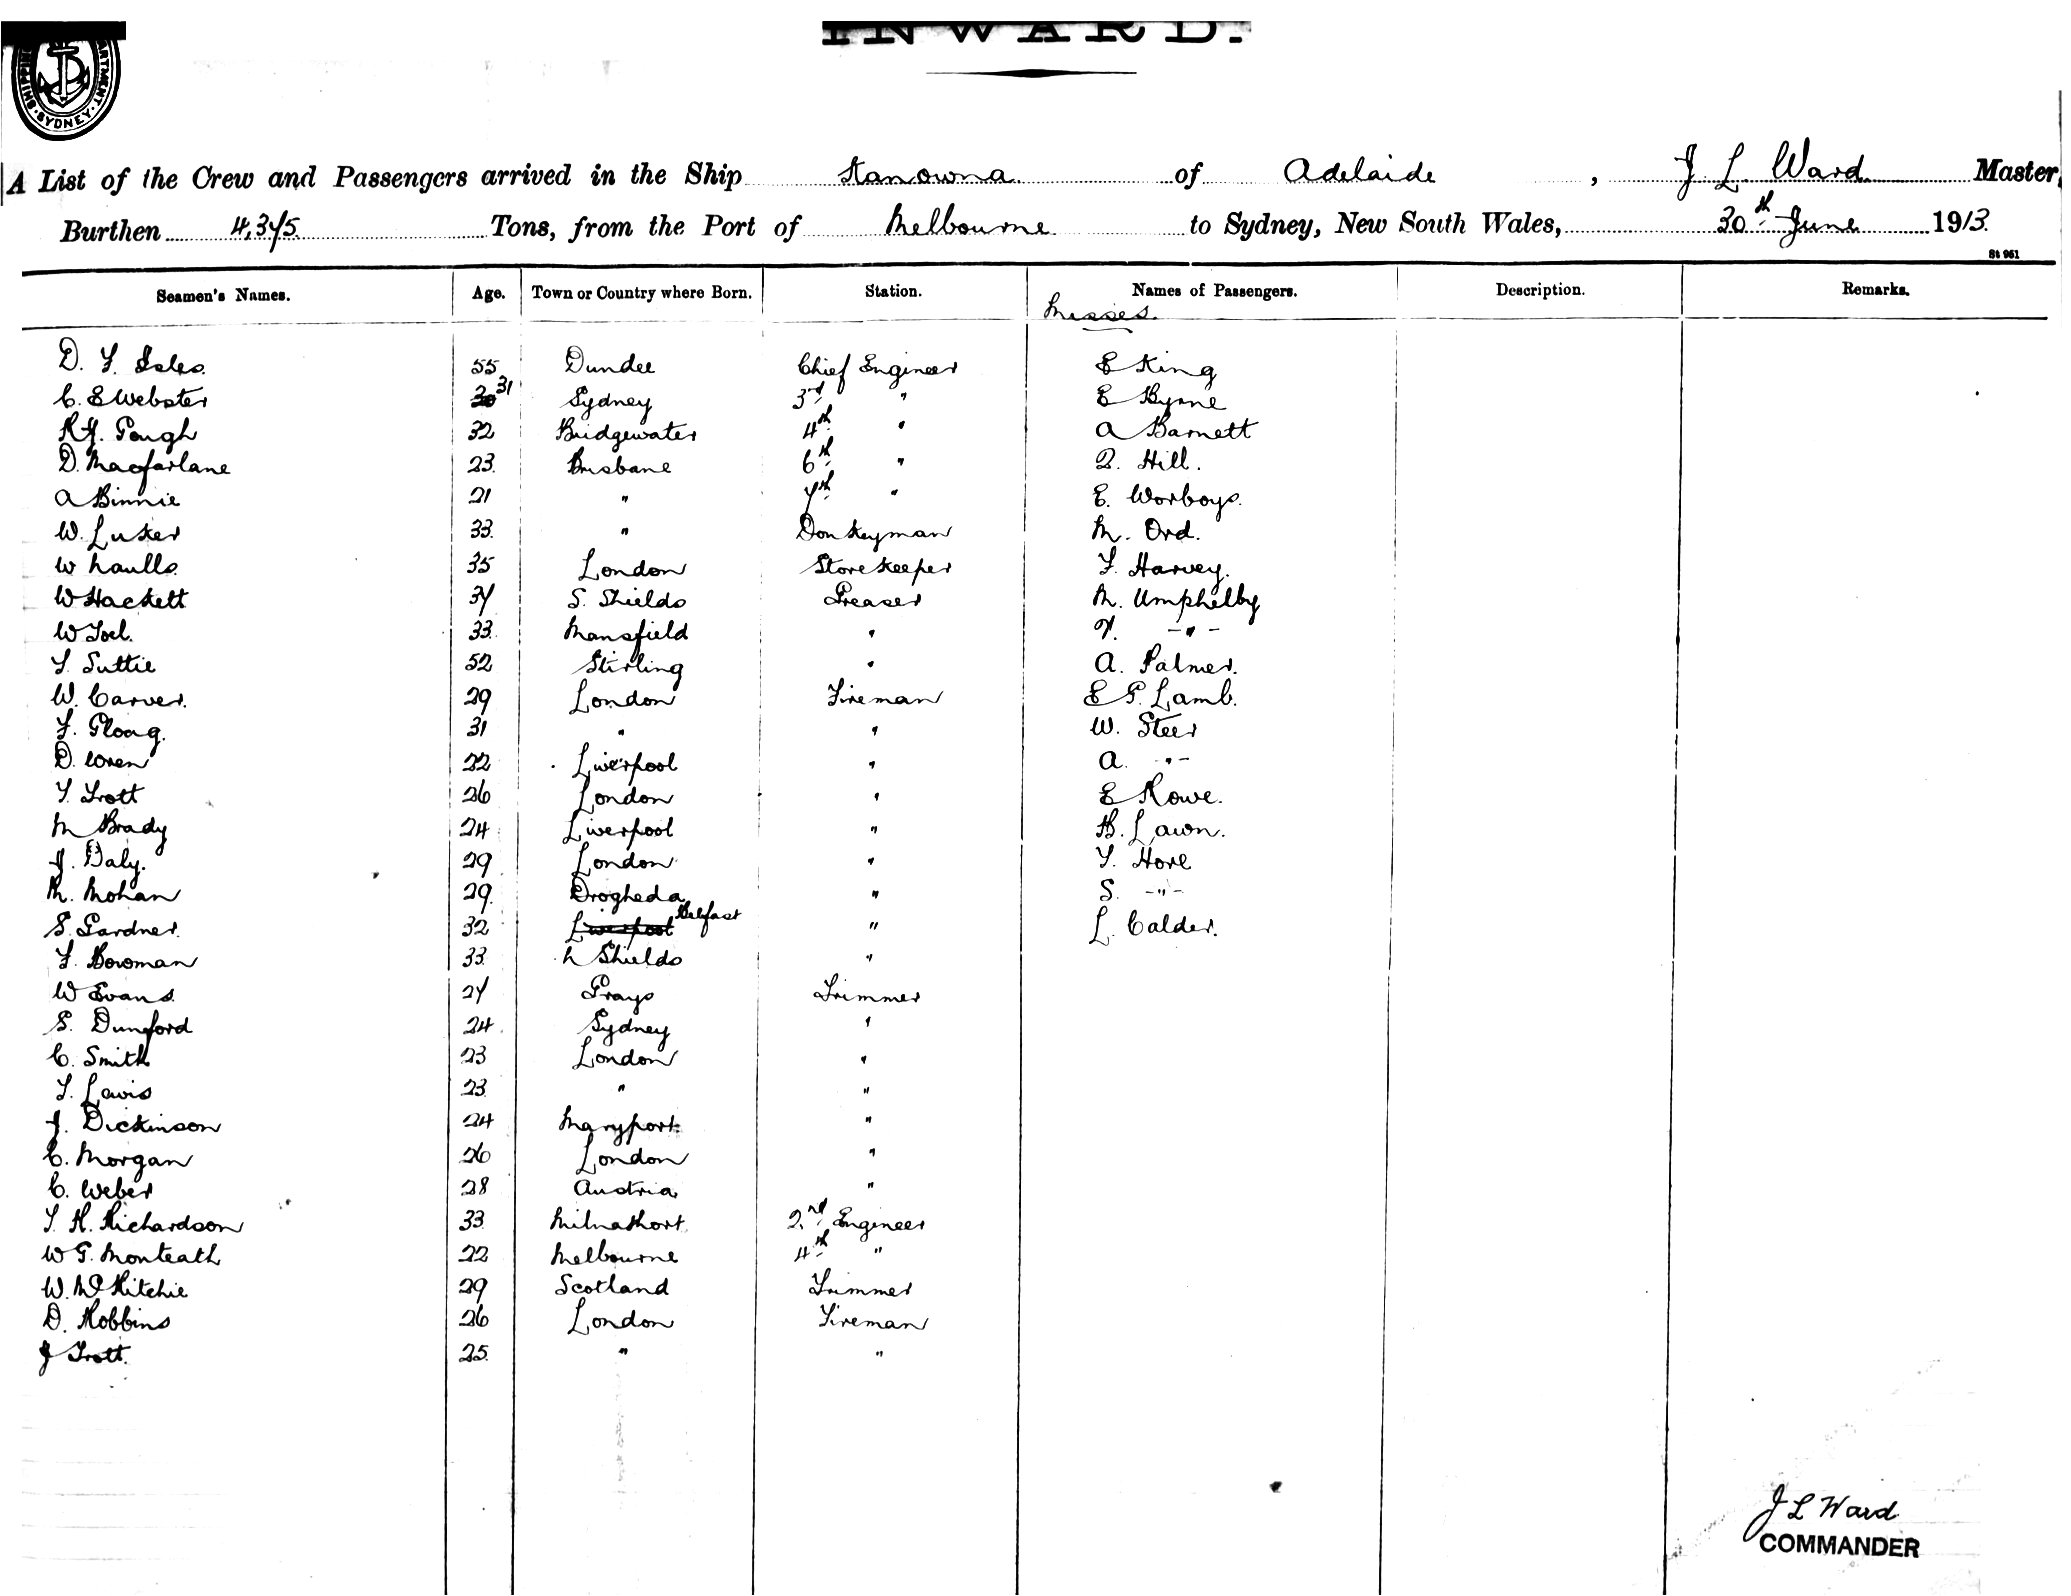 INWARD.
SHIPPING DEPARTMENT. SYDNEY
A List of the Crew and Passengers arrived in the Ship Kanowna of Adelaide, J. L. Ward Master,
Burthen 4,375 Tons, from the Port of Melbourne to Sydney, New South Wales, 30th June 1913.
St 961
Seamen's Names. Age. Town or Country where Born. Station. Names of Passengers. Description. Remarks.
Misses.
D. F. 55 Dundee Chief Engineer E King
C. E Webster 30 31 Sydney 3rd " E Byrne
R H. Gough 32 Bridgewater 4th " A Barnett
D. Macfarlane 23 Brisbane 6th " Q. Hill.
A Binnie 21 " 7th " E. Worboys.
W. Luker 33 " Donkeyman M. Ord.
W 35 London Storekeeper F. Harvey.
W Hackett 37 S. Shields Greaser M. Umphelby
W Joel. 33 Mansfield " V. - " -
T. Suttie 52 Stirling " A. Palmer.
W. Carver. 29 London Fireman E G. Lamb.
F. Gloag. 31 " " W. Steer
D. Wren 22 Liverpool " A. - " -
T. Trott 26 London " E Rowe.
M Brady 24 Liverpool " H. Lawn.
J. Daly. 29 London " T. Hore
M. Mohan 29 Drogheda " S. - " -
S. Gardner. 32 Liverpool Belfast " L. Calder.
F. Bowman 33 N Shields "
W Evans 27 Grays Trimmer
S. Dunford 24 Sydney "
C. Smith 23 London "
T. Lavis 23 " "
J. Dickinson 24 Maryport "
C. Morgan 26 London "
C. Weber 28 Austria "
T. H. Richardson 33 Milnathort 2nd Engineer
W G. Monteath 22 Melbourne 4th "
W. McRitchie 29 Scotland Trimmer
D. Robbins 26 London Fireman
J Trott. 25 " "
J L Ward
COMMANDER